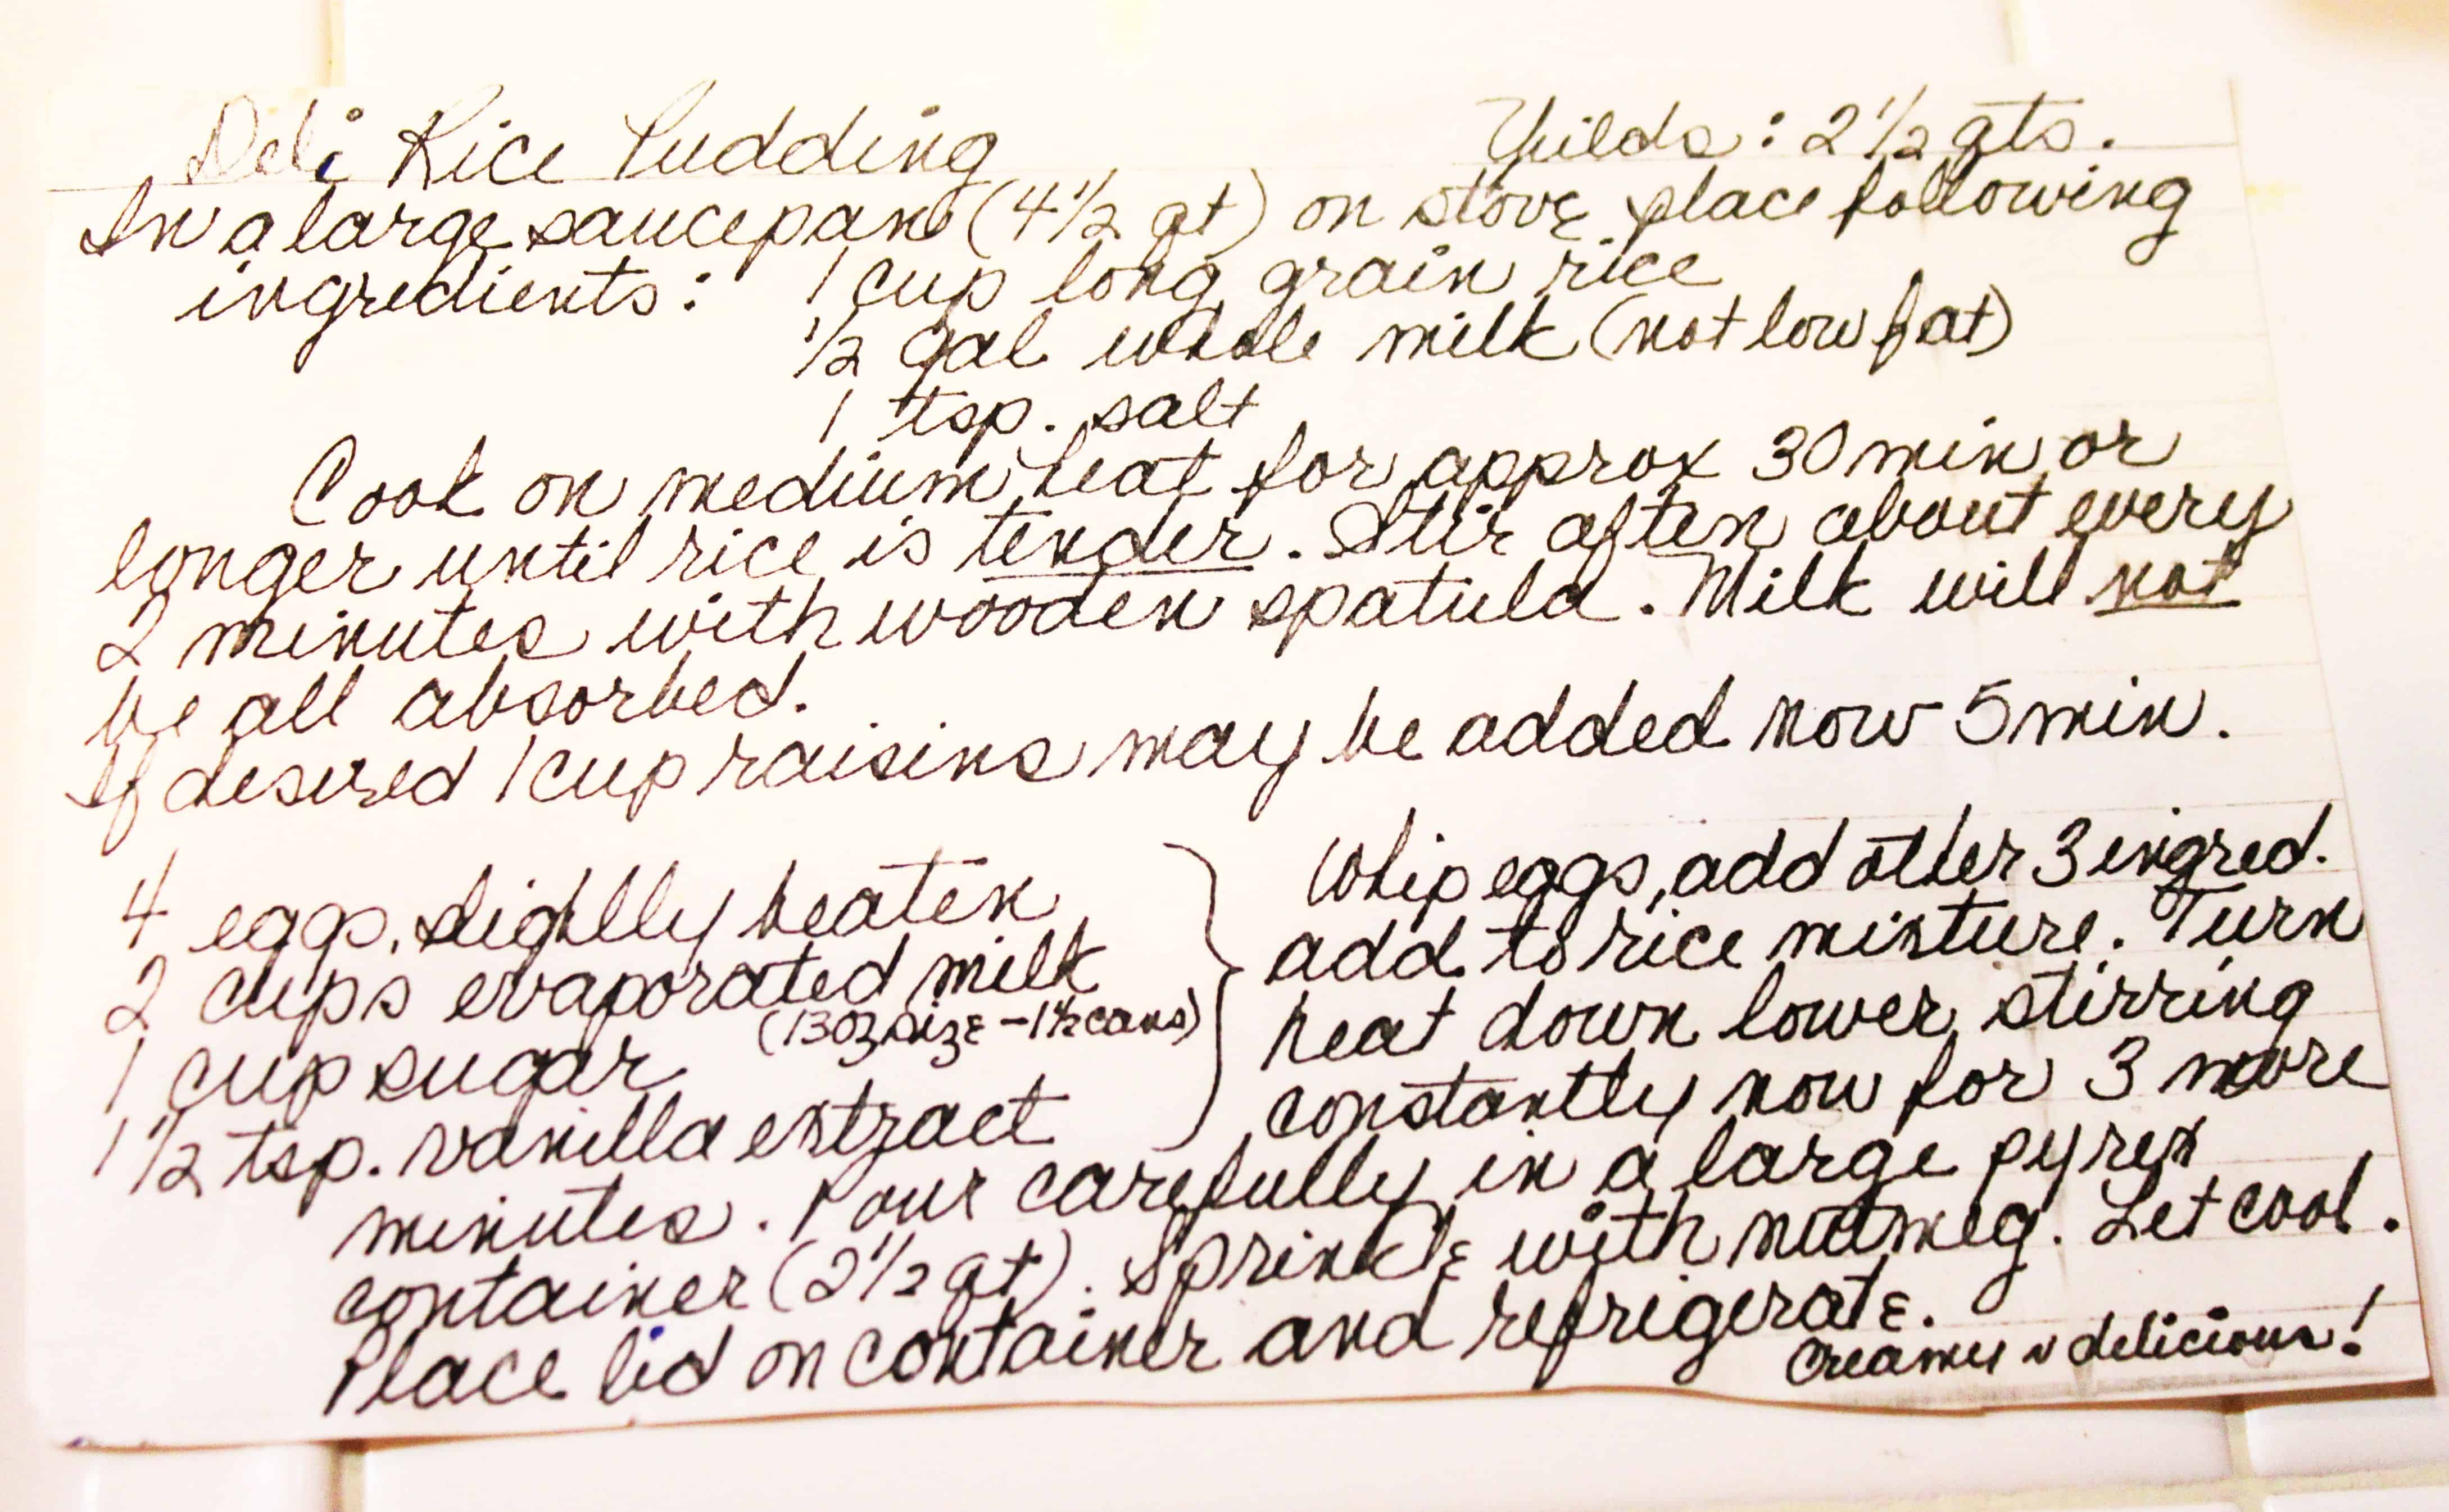 Deli Rice Pudding
Yeilds: 2 1/2 qts.
In a large saucepan (4 1/2 qt) on stove place following
ingredients: 1 cup long grain rice
1/2 gal whole milk (not low fat)
1 tsp. salt
Cook on medium heat for approx 30 min or
longer until rice is tender. Stir often about every
2 minutes with wooden spatula. Milk will not
be all absorbed.
If desired 1 cup raisins may be added now - 5 min.
4 eggs, slightly beaten
2 cups evaporated milk
(13 oz size - 1 1/2 cans)
1 cup sugar
1 1/2 tsp. vanilla extract
Whip eggs, add other 3 ingred.
add to rice mixture. Turn
heat down lower, stirring
constantly now for 3 more
minutes. Pour carefully in a large pyrex
container (2 1/2 qt). Sprinkle with nutmeg. Let cool.
Place lid on container and refrigerate.
Creamy n delicious!